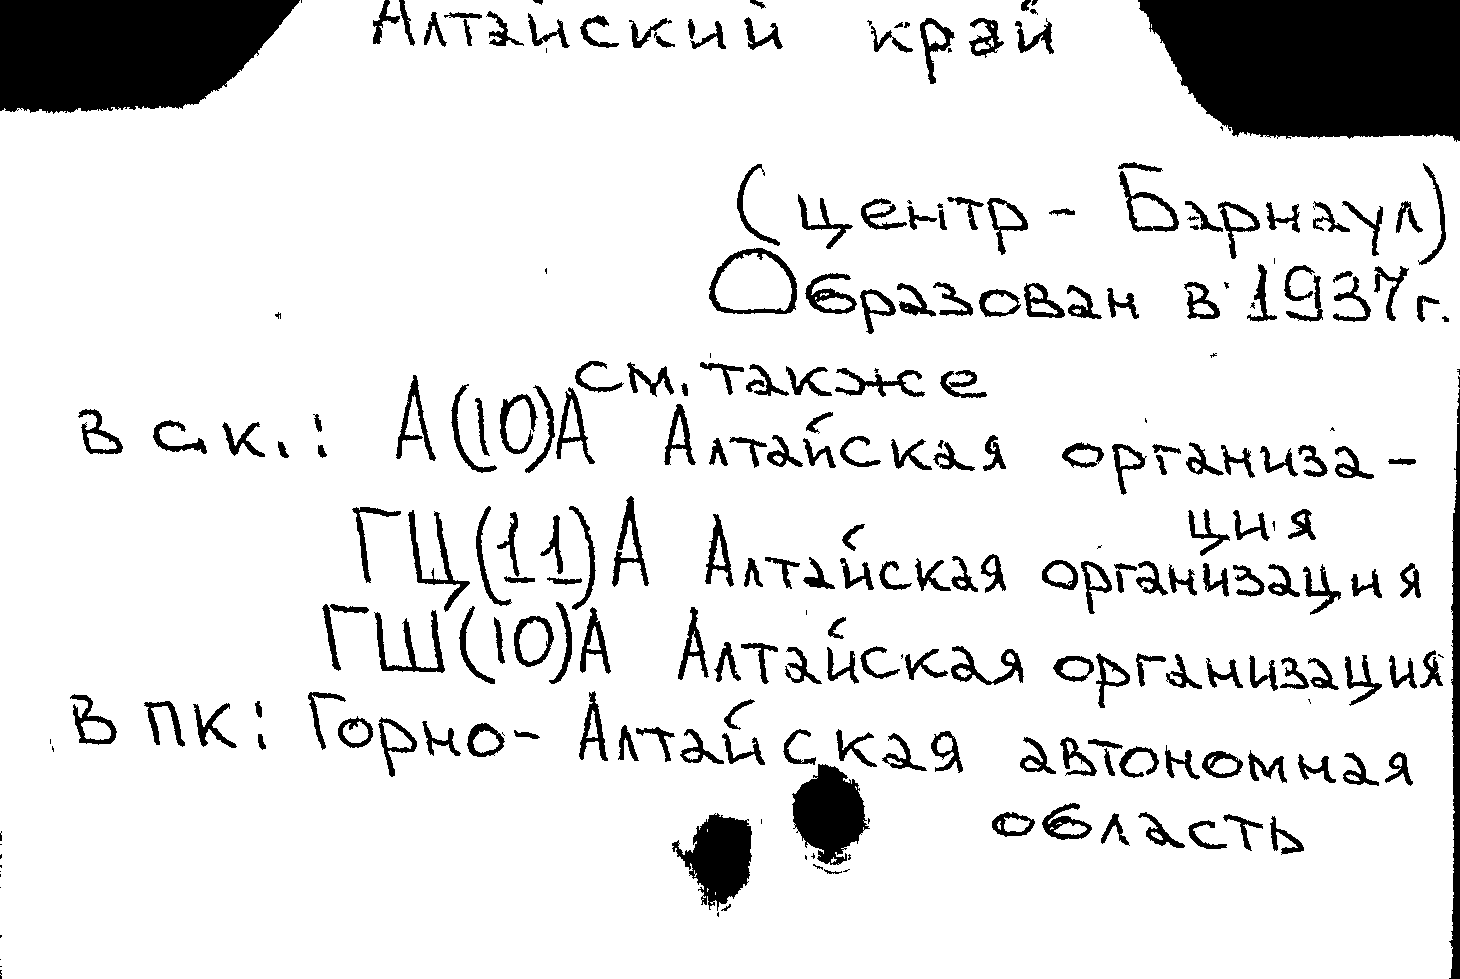 Алтайский край
(центр - Барнаул)
Образован в 1937г.
см. также
в с.к.: А(10)А Алтайская организа-
ция
ГЦ(11)А Алтайская организация
ГШ(10)А Алтайская организация
В ПК: Горно-Алтайская автономная
область